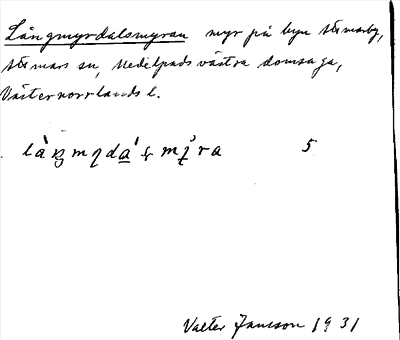 Långmyrdalsmyran myr på byn Stmarby,
Stmars sn, Medelpads västra domsaga,
Västernorrlands l.
5
Valter Jansson 1931